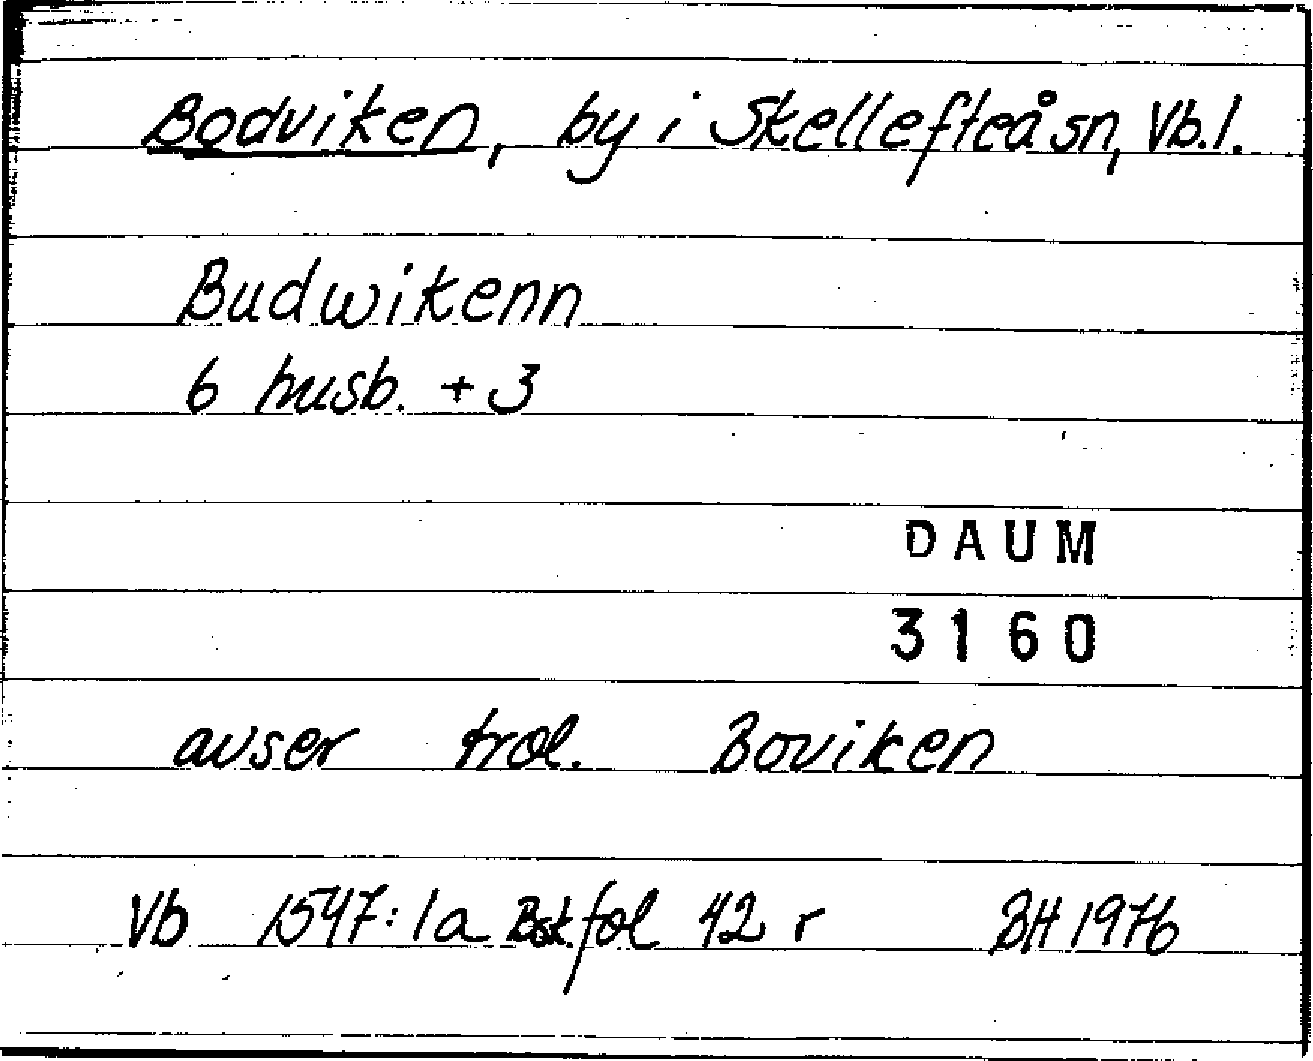 Bodviken, by i Skellefteå sn, Vb.l.
Budwikenn
6 husb. + 3
DAUM
3160
avser trol. Boviken
Vb 1547:1a Bsk fol 42 r BH 1976